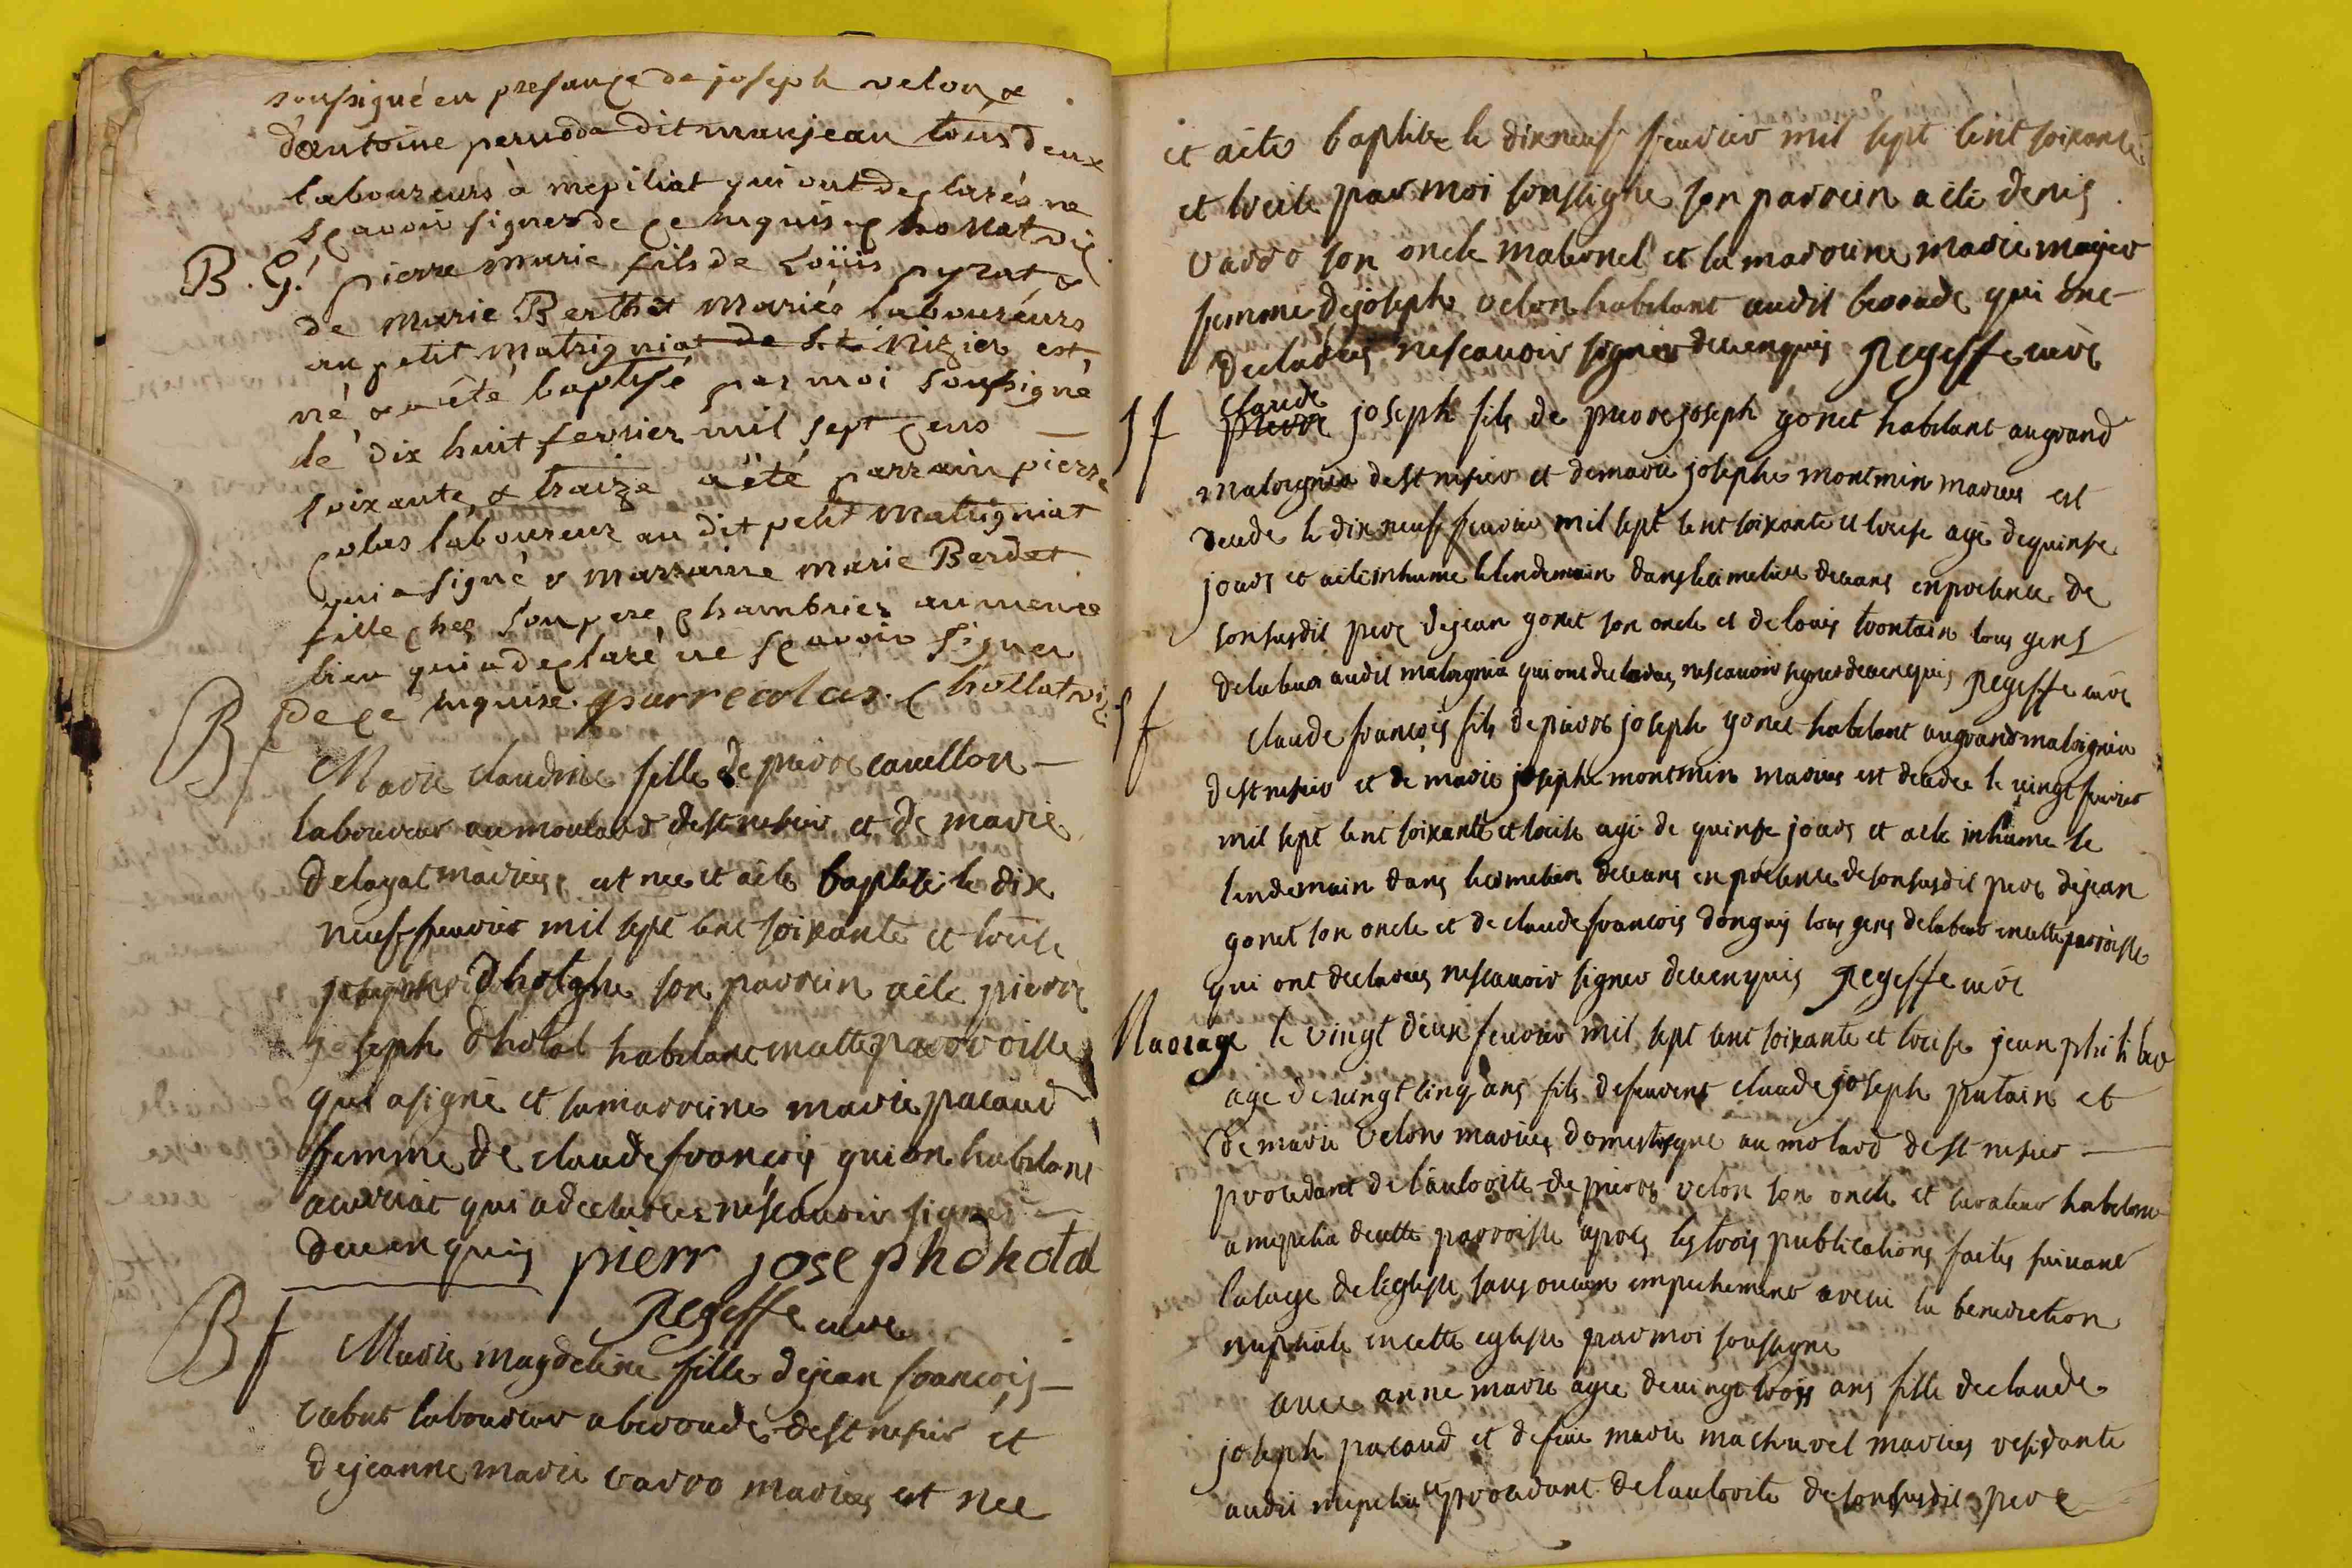 soussigné en presançe de joseph velon, &
d'antoine perroda dit manjean tous deux
laboureurs à mepiliat qui ont declarés ne
sçavoir signer de ce enquis chollat vic.
B. G. pierre marie fils de Loüis pyrat, &
de marie Berthet mariés laboureurs
au petit matrigniat de St. nizier est,
né & a été baptisé par moi soussigné
le dix huit fevrier mil sept çens
soixante & traize a été parrain pierre
colas laboureur au dit petit matrigniat
qui a signé & marraine marie Berdet
fille chez son pere chambrier au meme
lieu qui a declaré ne sçavoir signer
de ce enquise. pierre colas. chollat vic.
B f Marie claudine fille de pierre cavillon
laboureur au moulard de st nisier et de marie
delayat mariees est nee et a ete baptisé le dix
neuf fevrier mil sept cent soixante et treise
son parrein a ete pierre
joseph dhotal habitant en cette parroisse
qui a signé et sa marreine marie pacaud
femme de claude françois guion habitant
a curciat qui a declarees ne scavoir signer
de ce enquis pierr joseph dhotal
Regeffe cure
B f Marie magdeleine fille de jean françois
cabut laboureur a beroude de st nisier et
de jeanne marie varro mariees est nee
et a ete baptise le dix neuf fevrier mil sept cent soixante
et treise par moi soussigne son parrein a ete denis
varro son oncle maternel et la marreine marie mayer
femme de joseph velon habitant audit beroude qui ont
declarees ne scavoir signer de ce enquis Regeffe cure
S f claude
pierre joseph fils de pierre joseph gonet habitant au grand
matrignia de st nisier et de marie josephe montmin mariees est
decede le dix neuf fevrier mil sept cent soixante et treise agé de quinse
jours et a ete inhume le lendemain dans le cimetiere de ceans en presence de
son susdit pere de jean gonet son oncle et de louis trontain tous gens
de labeur audit matrignia qui ont declarees ne scavoir signer de ce enquis Regeffe cure
S f claude françois fils de pierre joseph gonet habitant au grand matrignia
de st nisier et de marie josephe montmin mariees est decede le vingt fevrier
mil sept cent soixante et treise agé de quinse jours et a ete inhume le
lendemain dans le cimetiere de ceans en presence de son susdit pere de jean
gonet son oncle et de claude françois donguy tous gens de labeur en cette parroisse
qui ont declarees ne scavoir signer de ce enquis Regeffe cure
Mariage le vingt deux fevrier mil sept cent soixante et treise jean philiber
age de vingt cinq ans fils de claude joseph putain et
de marie velon mariees domestique au molard de st nisier
procedant de l'autorite de pierre velon son oncle et curateur habitant
a mepelia de cette parroisse apres les trois publications faites suivant
l'usage de l'eglise sans aucun empechement a recu la benediction
nuptiale en cette eglise par moi soussigne
avec anne marie agee de vingt trois ans fille de claude
joseph pacaud et de feue marie machurel mariees residante
audit mepelia et procedant de l'autorite de son susdit pere